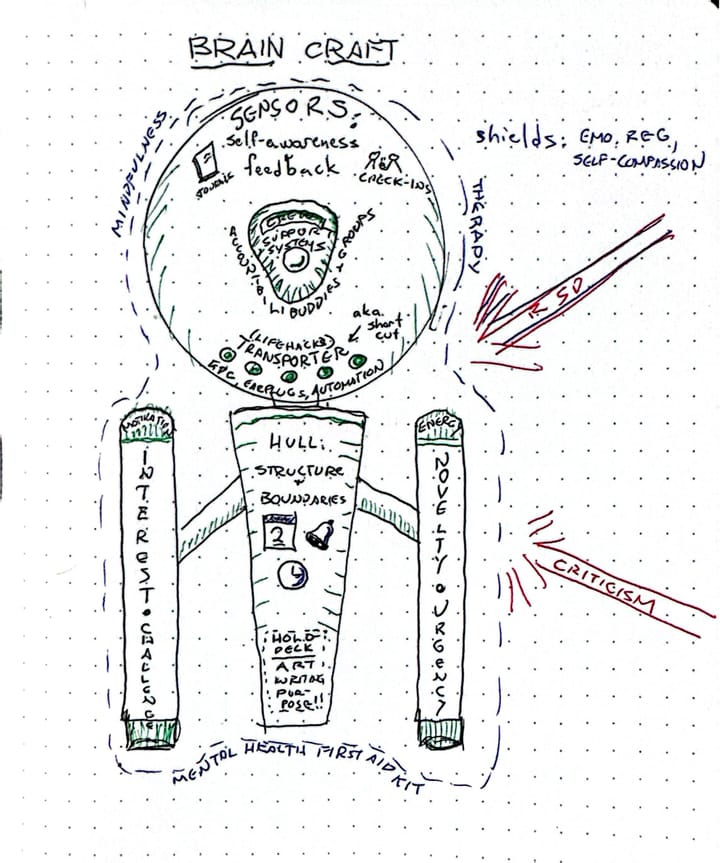 BRAIN CRAFT
SENSORS:
self-awareness
feedback
JOURNAL
CHECK-INS
MINDFULNESS
shields: EMO. REG,
SELF-COMPASSION
THERAPY
CREW:
SUPPORT
SYSTEMS
ACCOUNTIBILIBUDDIES + GROUPS
RSD
aka.
short
cut
(LIFEHACKS)
TRANSPORTER
EDC, EARPLUGS, AUTOMATION
MOTIVATION
INTEREST • CHALLENGE
HULL:
STRUCTURE
+
BOUNDARIES
2
HOLO-
DECK
ART
WRITING
PUR-
POSE!!
ENERGY
NOVELTY • URGENCY
CRITICISM
MENTAL HEALTH FIRST AID KIT